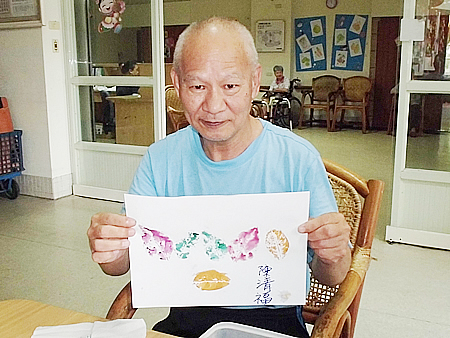 陳清福